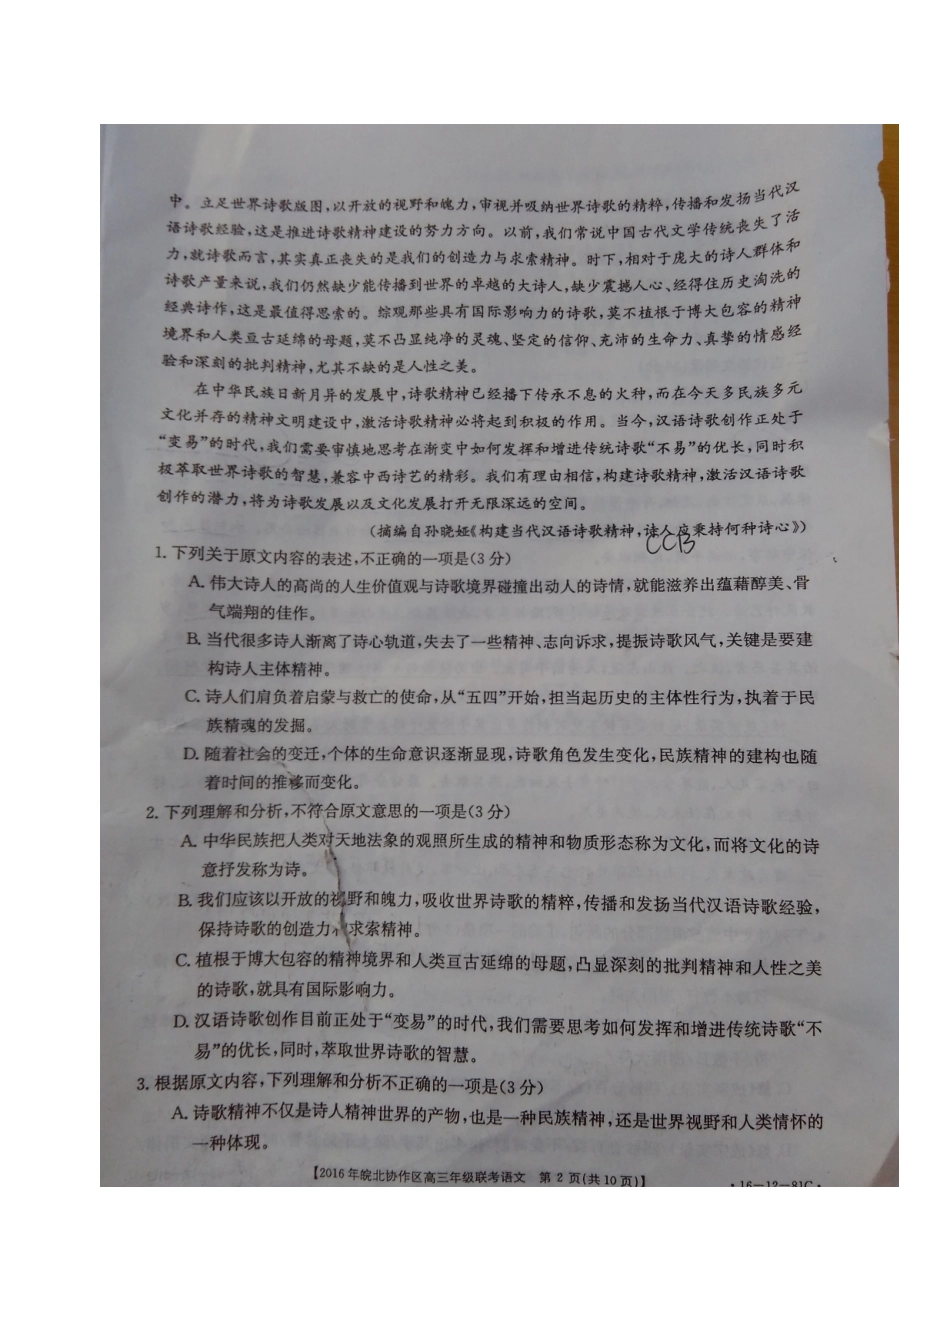 中。立足世界诗歌版图,以开放的视野和魄力,审视并吸纳世界诗歌的精粹,传播和发扬当代汉
语诗歌经验,这是推进诗歌精神建设的努力方向。以前,我们常说中国古代文学传统丧失了活
力,就诗歌而言,其实真正丧失的是我们的创造力与求索精神。时下,相对于庞大的诗人群体和
诗歌产量来说,我们仍然缺少能传播到世界的卓越的大诗人,缺少震撼人心、经得住历史淘洗的
经典诗作,这是最值得思索的。综观那些具有国际影响力的诗歌,莫不植根于博大包容的精神
境界和人类亘古延绵的母题,莫不凸显纯净的灵魂、坚定的信仰、充沛的生命力、真挚的情感经
验和深刻的批判精神,尤其不缺的是人性之美。
在中华民族日新月异的发展中,诗歌精神已经播下传承不息的火种,而在今天多民族多元
文化并存的精神文明建设中,激活诗歌精神必将起到积极的作用。当今,汉语诗歌创作正处于
“变易”的时代,我们需要审慎地思考在渐变中如何发挥和增进传统诗歌“不易”的优长,同时积
极萃取世界诗歌的智慧,兼容中西诗艺的精彩。我们有理由相信,构建诗歌精神,激活汉语诗歌
创作的潜力,将为诗歌发展以及文化发展打开无限深远的空间。
(摘编自孙晓娅《构建当代汉语诗歌精神,诗人应秉持何种诗心》)
CCB
1.下列关于原文内容的表述,不正确的一项是(3分)
A.伟大诗人的高尚的人生价值观与诗歌境界碰撞出动人的诗情,就能滋养出蕴藉醇美、骨
气端翔的佳作。
B.当代很多诗人渐离了诗心轨道,失去了一些精神、志向诉求,提振诗歌风气,关键是要建
构诗人主体精神。
C.诗人们肩负着启蒙与救亡的使命,从“五四”开始,担当起历史的主体性行为,执着于民
族精魂的发掘。
D.随着社会的变迁,个体的生命意识逐渐显现,诗歌角色发生变化,民族精神的建构也随
着时间的推移而变化。
2.下列理解和分析,不符合原文意思的一项是(3分)
A.中华民族把人类对天地法象的观照所生成的精神和物质形态称为文化,而将文化的诗
意抒发称为诗。
B.我们应该以开放的视野和魄力,吸收世界诗歌的精粹,传播和发扬当代汉语诗歌经验,
保持诗歌的创造力和求索精神。
C.植根于博大包容的精神境界和人类亘古延绵的母题,凸显深刻的批判精神和人性之美
的诗歌,就具有国际影响力。
D.汉语诗歌创作目前正处于“变易”的时代,我们需要思考如何发挥和增进传统诗歌“不
易”的优长,同时,萃取世界诗歌的智慧。
3.根据原文内容,下列理解和分析不正确的一项是(3分)
A.诗歌精神不仅是诗人精神世界的产物,也是一种民族精神,还是世界视野和人类情怀的
一种体现。
【2016年皖北协作区高三年级联考语文 第2页(共10页)】
·16-12-81C·